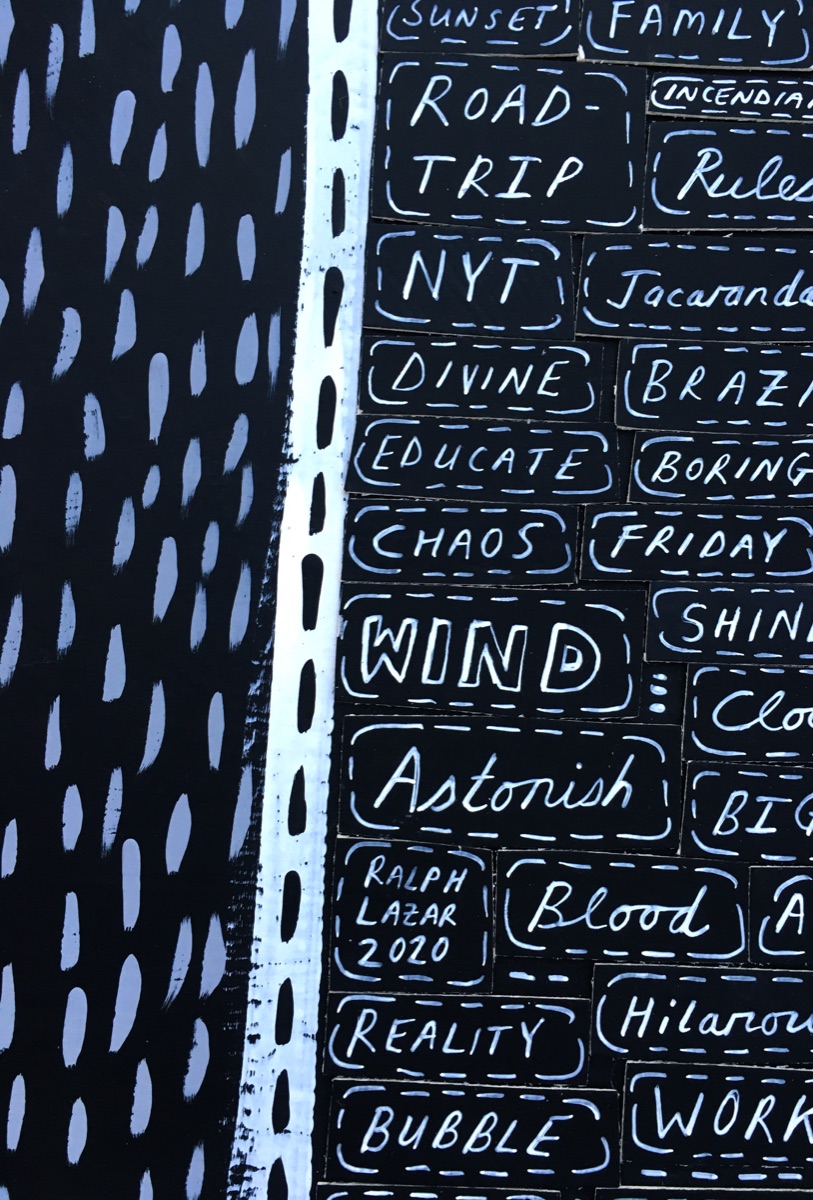 SUNSET FAMILY
ROAD-
TRIP
INCENDIA
Rules
NYT Jacaranda
DIVINE BRAZI
EDUCATE BORING
CHAOS FRIDAY
WIND SHIN
Cloo
Astonish BIG
RALPH
LAZAR
2020
Blood A
REALITY Hilarou
BUBBLE WORK